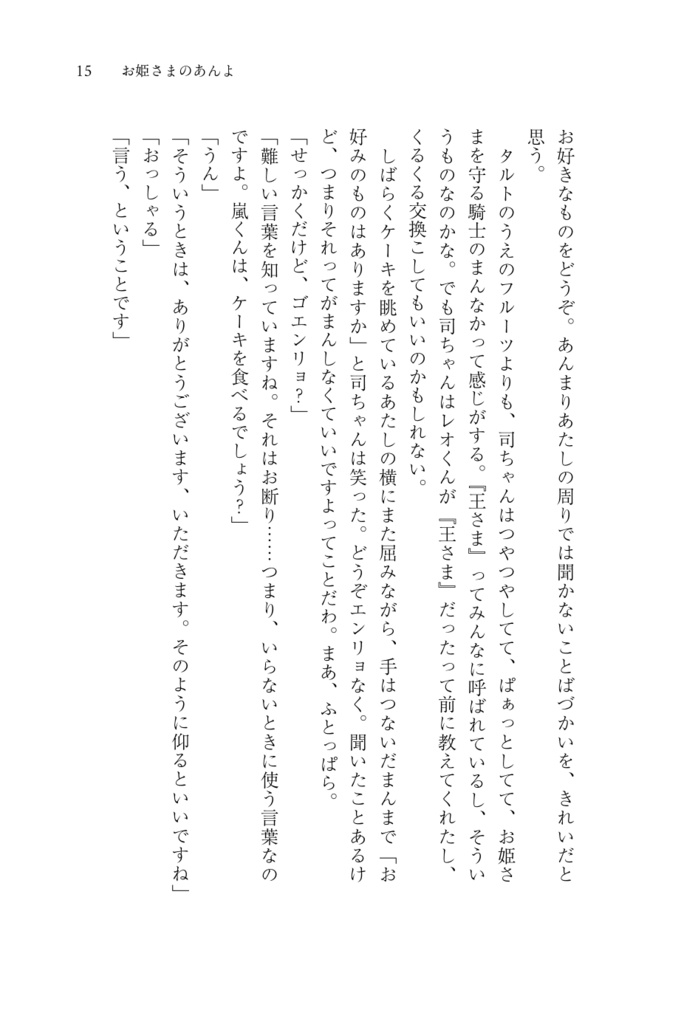 15　お姫さまのあんよ
お好きなものをどうぞ。あんまりあたしの周りでは聞かないことばづかいを、きれいだと
思う。
　タルトのうえのフルーツよりも、司ちゃんはつやつやしてて、ぱぁっとしてて、お姫さ
まを守る騎士のまんなかって感じがする。『王さま』ってみんなに呼ばれているし、そうい
うものなのかな。でも司ちゃんはレオくんが『王さま』だったって前に教えてくれたし、
くるくる交換こしてもいいのかもしれない。
　しばらくケーキを眺めているあたしの横にまた屈みながら、手はつないだまんまで「お
好みのものはありますか」と司ちゃんは笑った。どうぞエンリョなく。聞いたことあるけ
ど、つまりそれってがまんしなくていいですよってことだわ。まあ、ふとっぱら。
「せっかくだけど、ゴエンリョ？」
「難しい言葉を知っていますね。それはお断り……つまり、いらないときに使う言葉なの
ですよ。嵐くんは、ケーキを食べるでしょう？」
「うん」
「そういうときは、ありがとうございます、いただきます。そのように仰るといいですね」
「おっしゃる」
「言う、ということです」